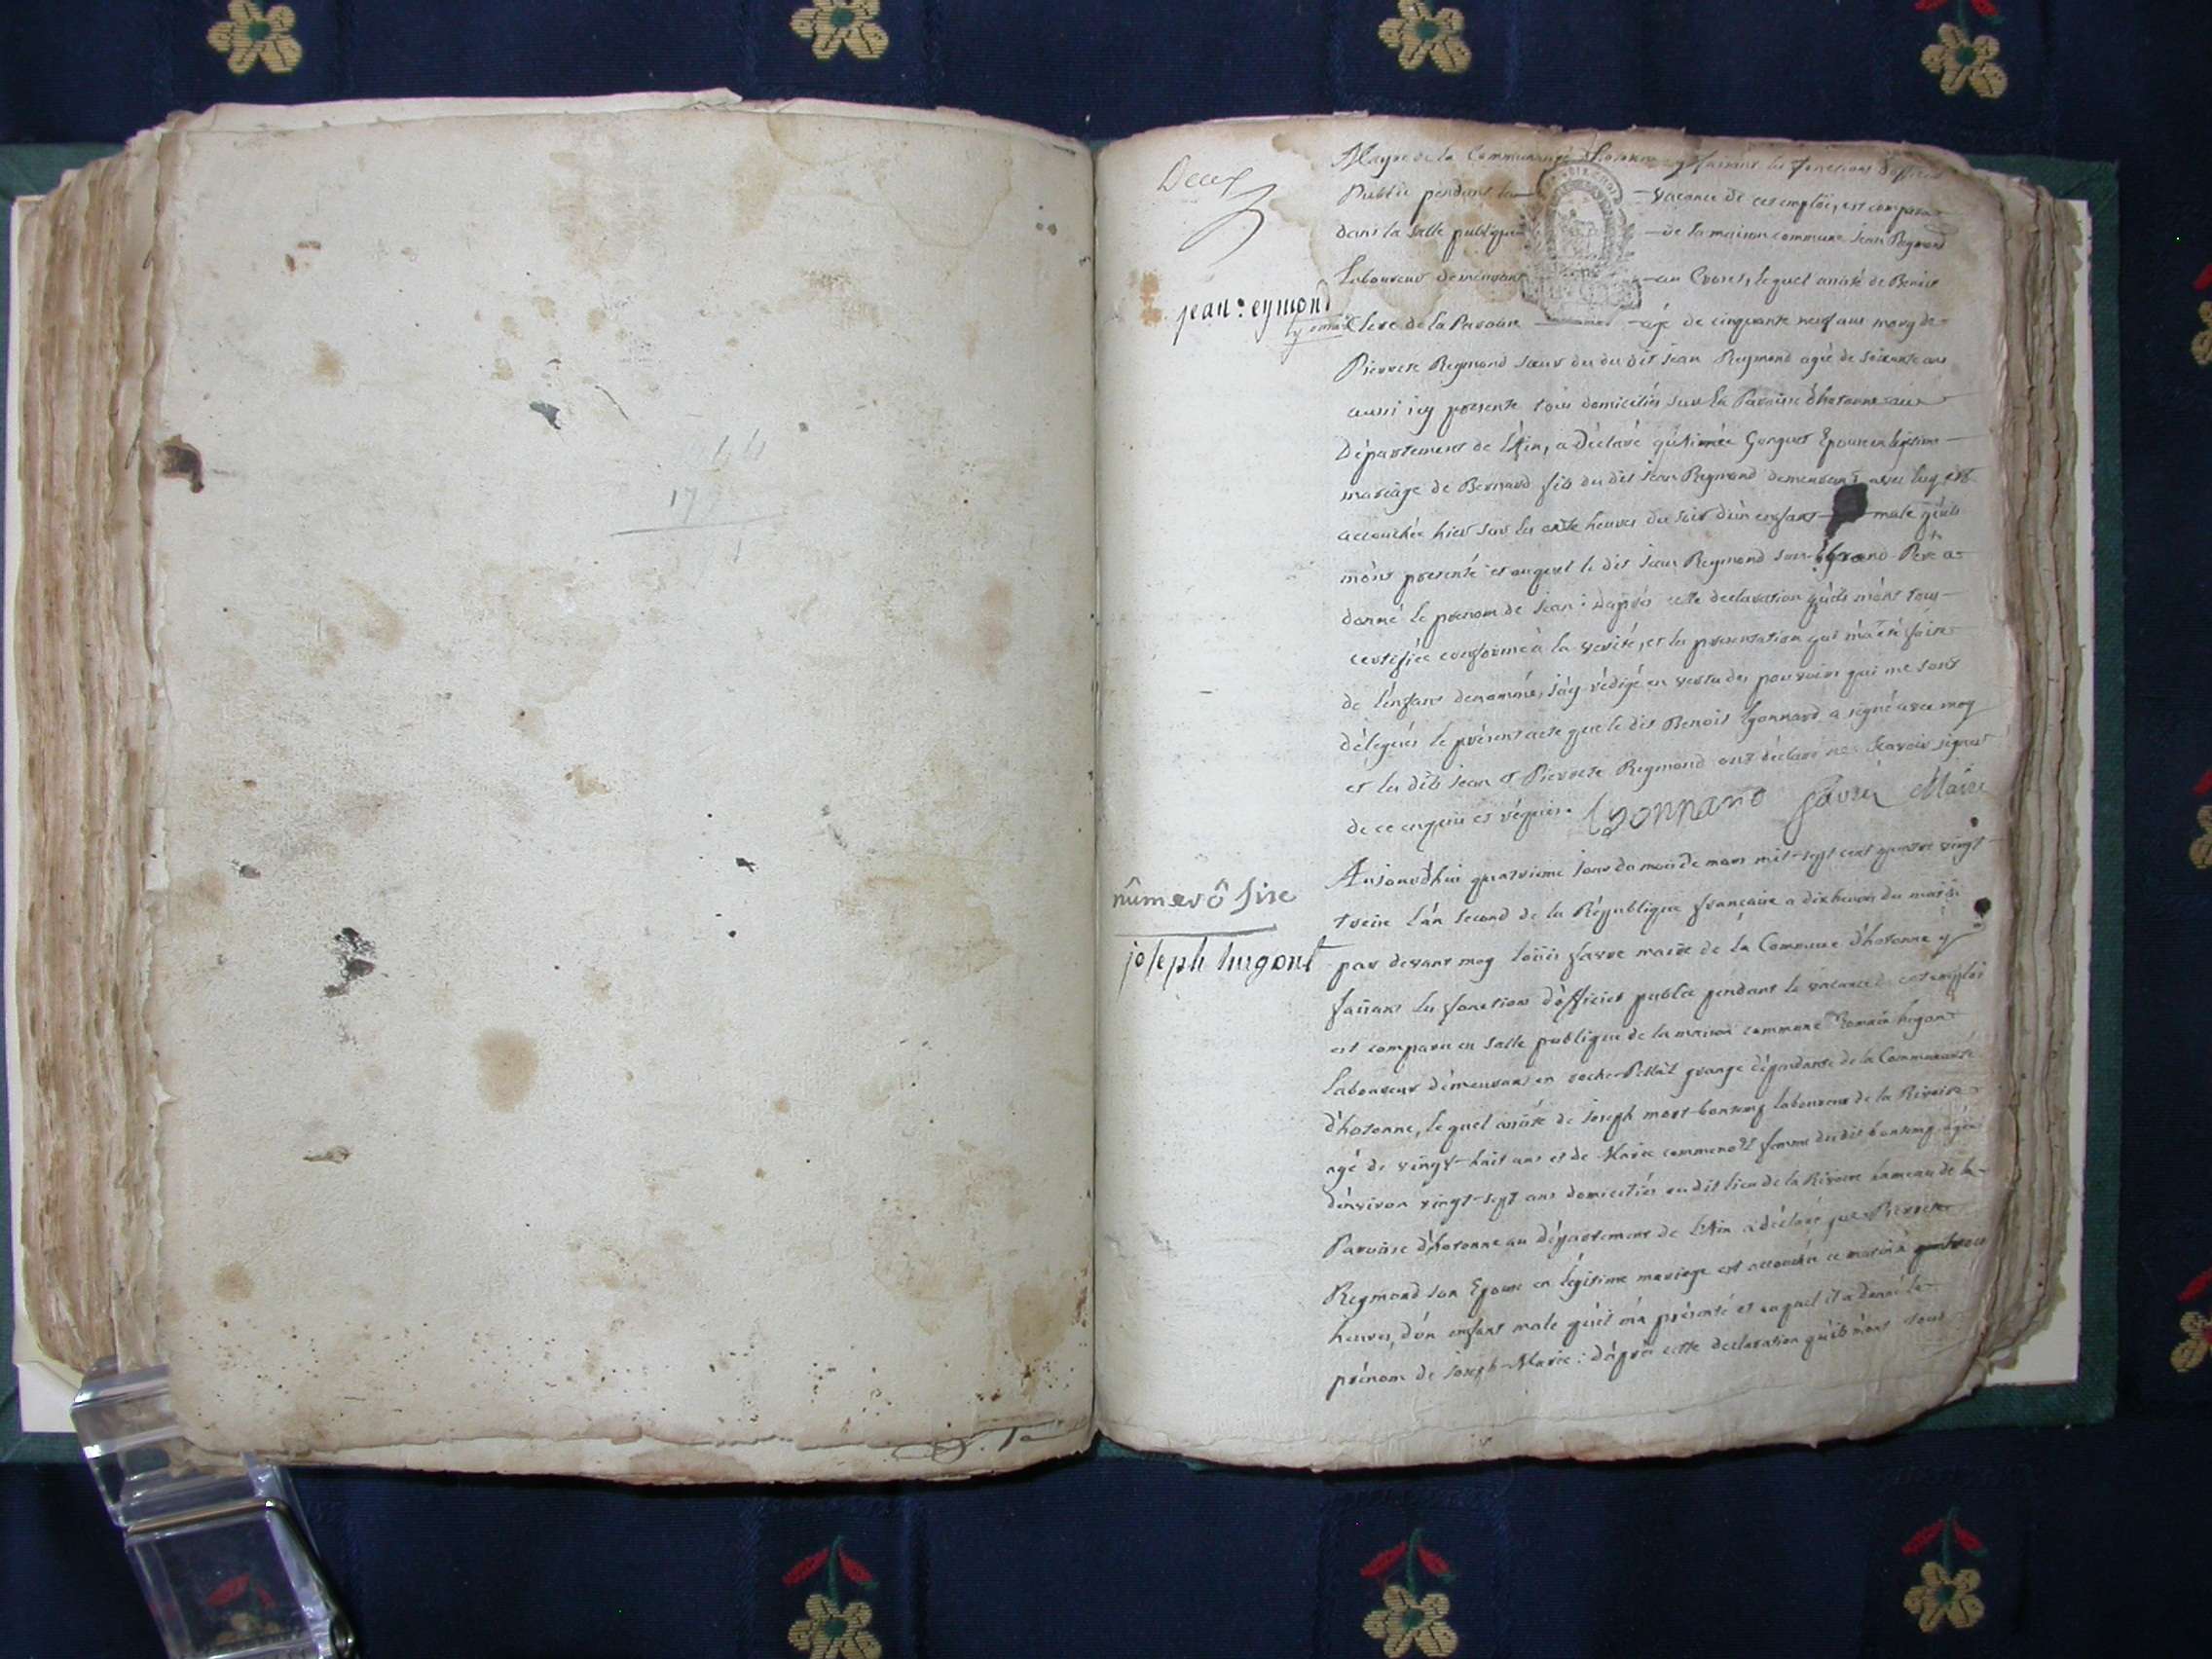 17
Deux
jean: eymond
Mayre de la Communauté d'hotonne y faisant les fonctions d'officier
Public pendant la vacance de cet emploi, est comparu
dans la salle publique de la maison commune Jean Reymond
Laboureur demeurant au lequel assisté de Benoit
de la Paroisse agé de cinquante neuf ans mary de
Pierrete Reymond sœur du du dit jean Reymond agée de soixante ans
aussi icy presente tous domiciliés sur la Paroisse d'hotonne au
Département de L'Ain, a déclaré qu'Aimée Gonguet Epouse en légitime
mariage de Bernard fils du dit jean Reymond demeurant avec luy est
accouchée hier sur les onze heures du soir d'un enfant male qu'ils
m'ont presenté et auquel le dit jean Reymond son Grand Pere a
donné le prenom de jean: d'après cette declaration qu'ils m'ont tous
certifiée conforme à la verité, et la presentation qui m'a été faite
de l'enfant denommé, j'ay rédigé en vertu des pouvoirs qui me sont
délegués le présent acte que le dit Benoit Lyonnard a signé avec moy
et les dits jean et Pierrete Reymond ont déclaré ne scavoir signer
de ce enquis et réquis. Lyonnard favre Maire
nûmerô sixe
joseph hugont
Aujourd'hui quatrieme jour du mois de mars mil-sept cent quatre vingt
treize l'an second de la République française a dix heures du matin
par devant moy loüis favre maire de la Commune d'hotonne y
faisant les fonctions d'officier public pendant la vacance de cet emploi
est comparu en salle publique de la maison commune Romain hugont
Laboureur demeurant en roche-Pellat grange dépendante de la Communauté
d'hotonne, lequel assisté de joseph mort-bontemp laboureur de la Rivoire
agé de vingt-huit ans et de Marie femme du dit bontemp agée
d'environ vingt-sept ans domiciliés au dit lieu de la Rivoire hameau de la
Paroisse d'hotonne au département de L'Ain a déclaré que Pierrete
Reymond son Epouse en légitime mariage est accouchée ce matin à
heures, d'un enfant male qu'il m'a présenté et auquel il a donné le
prénom de joseph-Marie: d'après cette declaration qu'ils m'ont tous